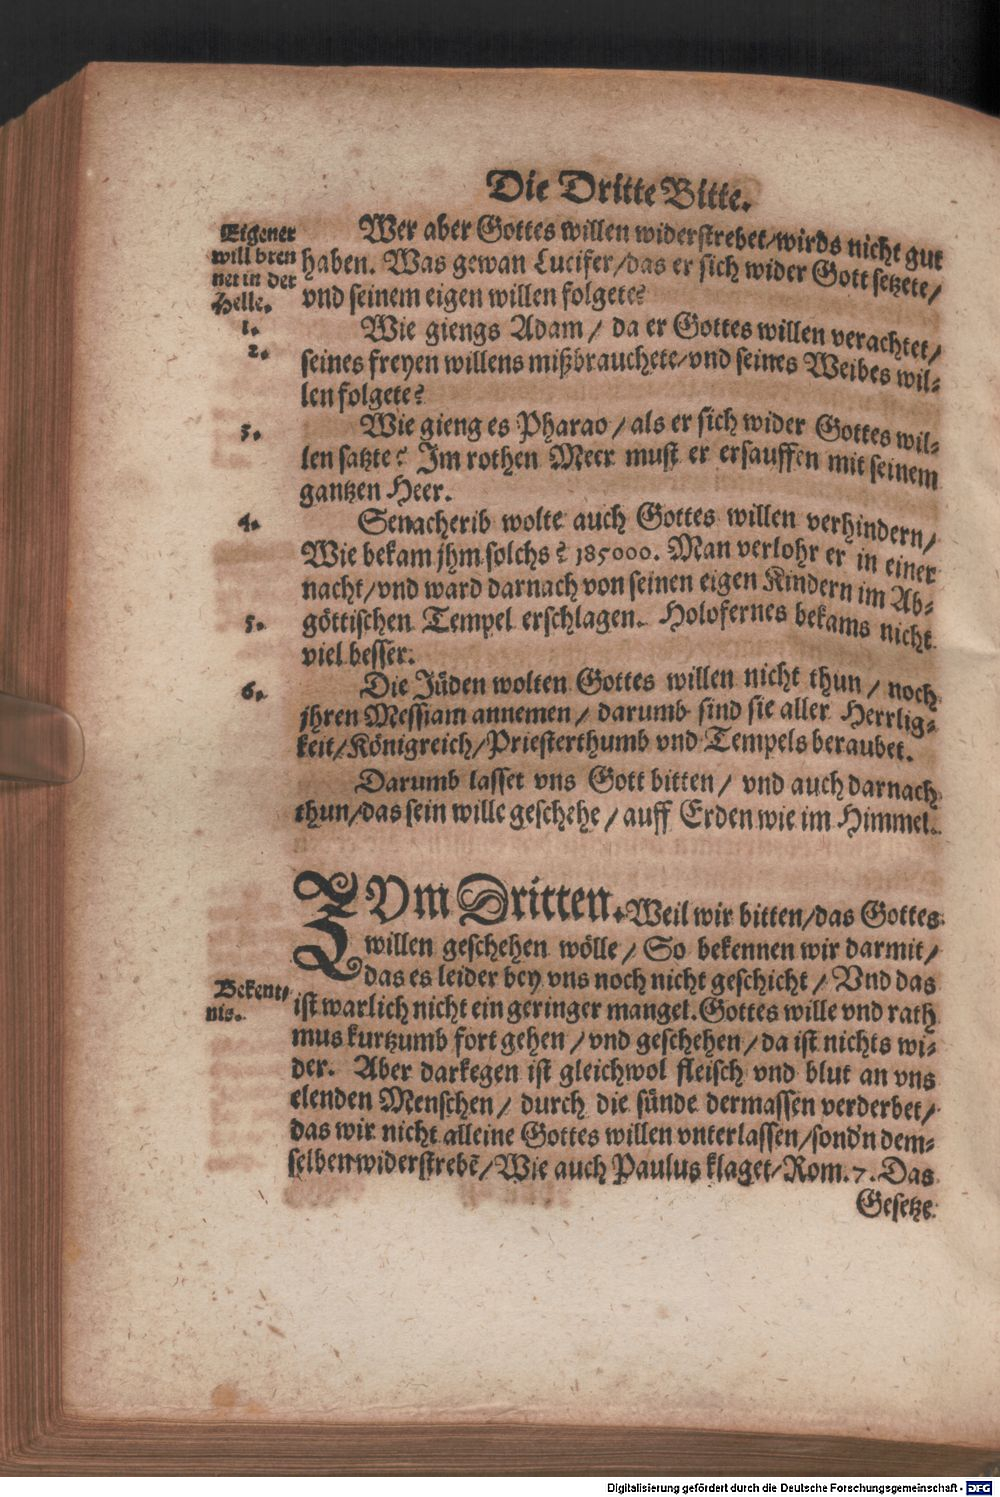 Die Dritte Bitte.
Eigener
will bren
net in der
Helle.
1.
2.
3.
4.
5.
6.
Wer aber Gottes willen widerstrebet/wirds nicht gut
haben. Was gewan Lucifer/das er sich wider Gott setzete/
vnd seinem eigen willen folgete?
Wie giengs Adam/ da er Gottes willen verachtet/
seines freyen willens mißbrauchete/vnd seines Weibes wil-
len folgete?
Wie gieng es Pharao/als er sich wider Gottes wil-
len satzte? Im rothen Meer must er ersauffen mit seinem
gantzen Heer.
Senacherib wolte auch Gottes willen verhindern/
Wie bekam jhm solchs? 185000. Man verlohr er in einer
nacht/vnd ward darnach von seinen eigen Kindern im Ab-
göttischen Tempel erschlagen. Holofernes bekams nicht
viel besser.
Die Jüden wolten Gottes willen nicht thun/ noch
jhren Messiam annemen/ darumb sind sie aller Herrlig-
keit/Königreich/Priesterthumb vnd Tempels beraubet.
Darumb lasset vns Gott bitten/ vnd auch darnach
thun/das sein wille geschehe/auff Erden wie im Himmel.
ZVm Dritten. Weil wir bitten/das Gottes
willen geschehen wölle/ So bekennen wir darmit/
das es leider bey vns noch nicht geschicht/ Vnd das
ist warlich nicht ein geringer mangel. Gottes wille vnd rath
mus kurtzumb fort gehen/vnd geschehen/da ist nichts wi-
der. Aber darkegen ist gleichwol fleisch vnd blut an vns
elenden Menschen/ durch die sünde dermassen verderbet/
das wir nicht alleine Gottes willen vnterlassen/sond'n dem-
selben widerstrebē/Wie auch Paulus klaget/Rom. 7. Das
Bekent-
nis.
Gesetze
Digitalisierung gefördert durch die Deutsche Forschungsgemeinschaft - DFG